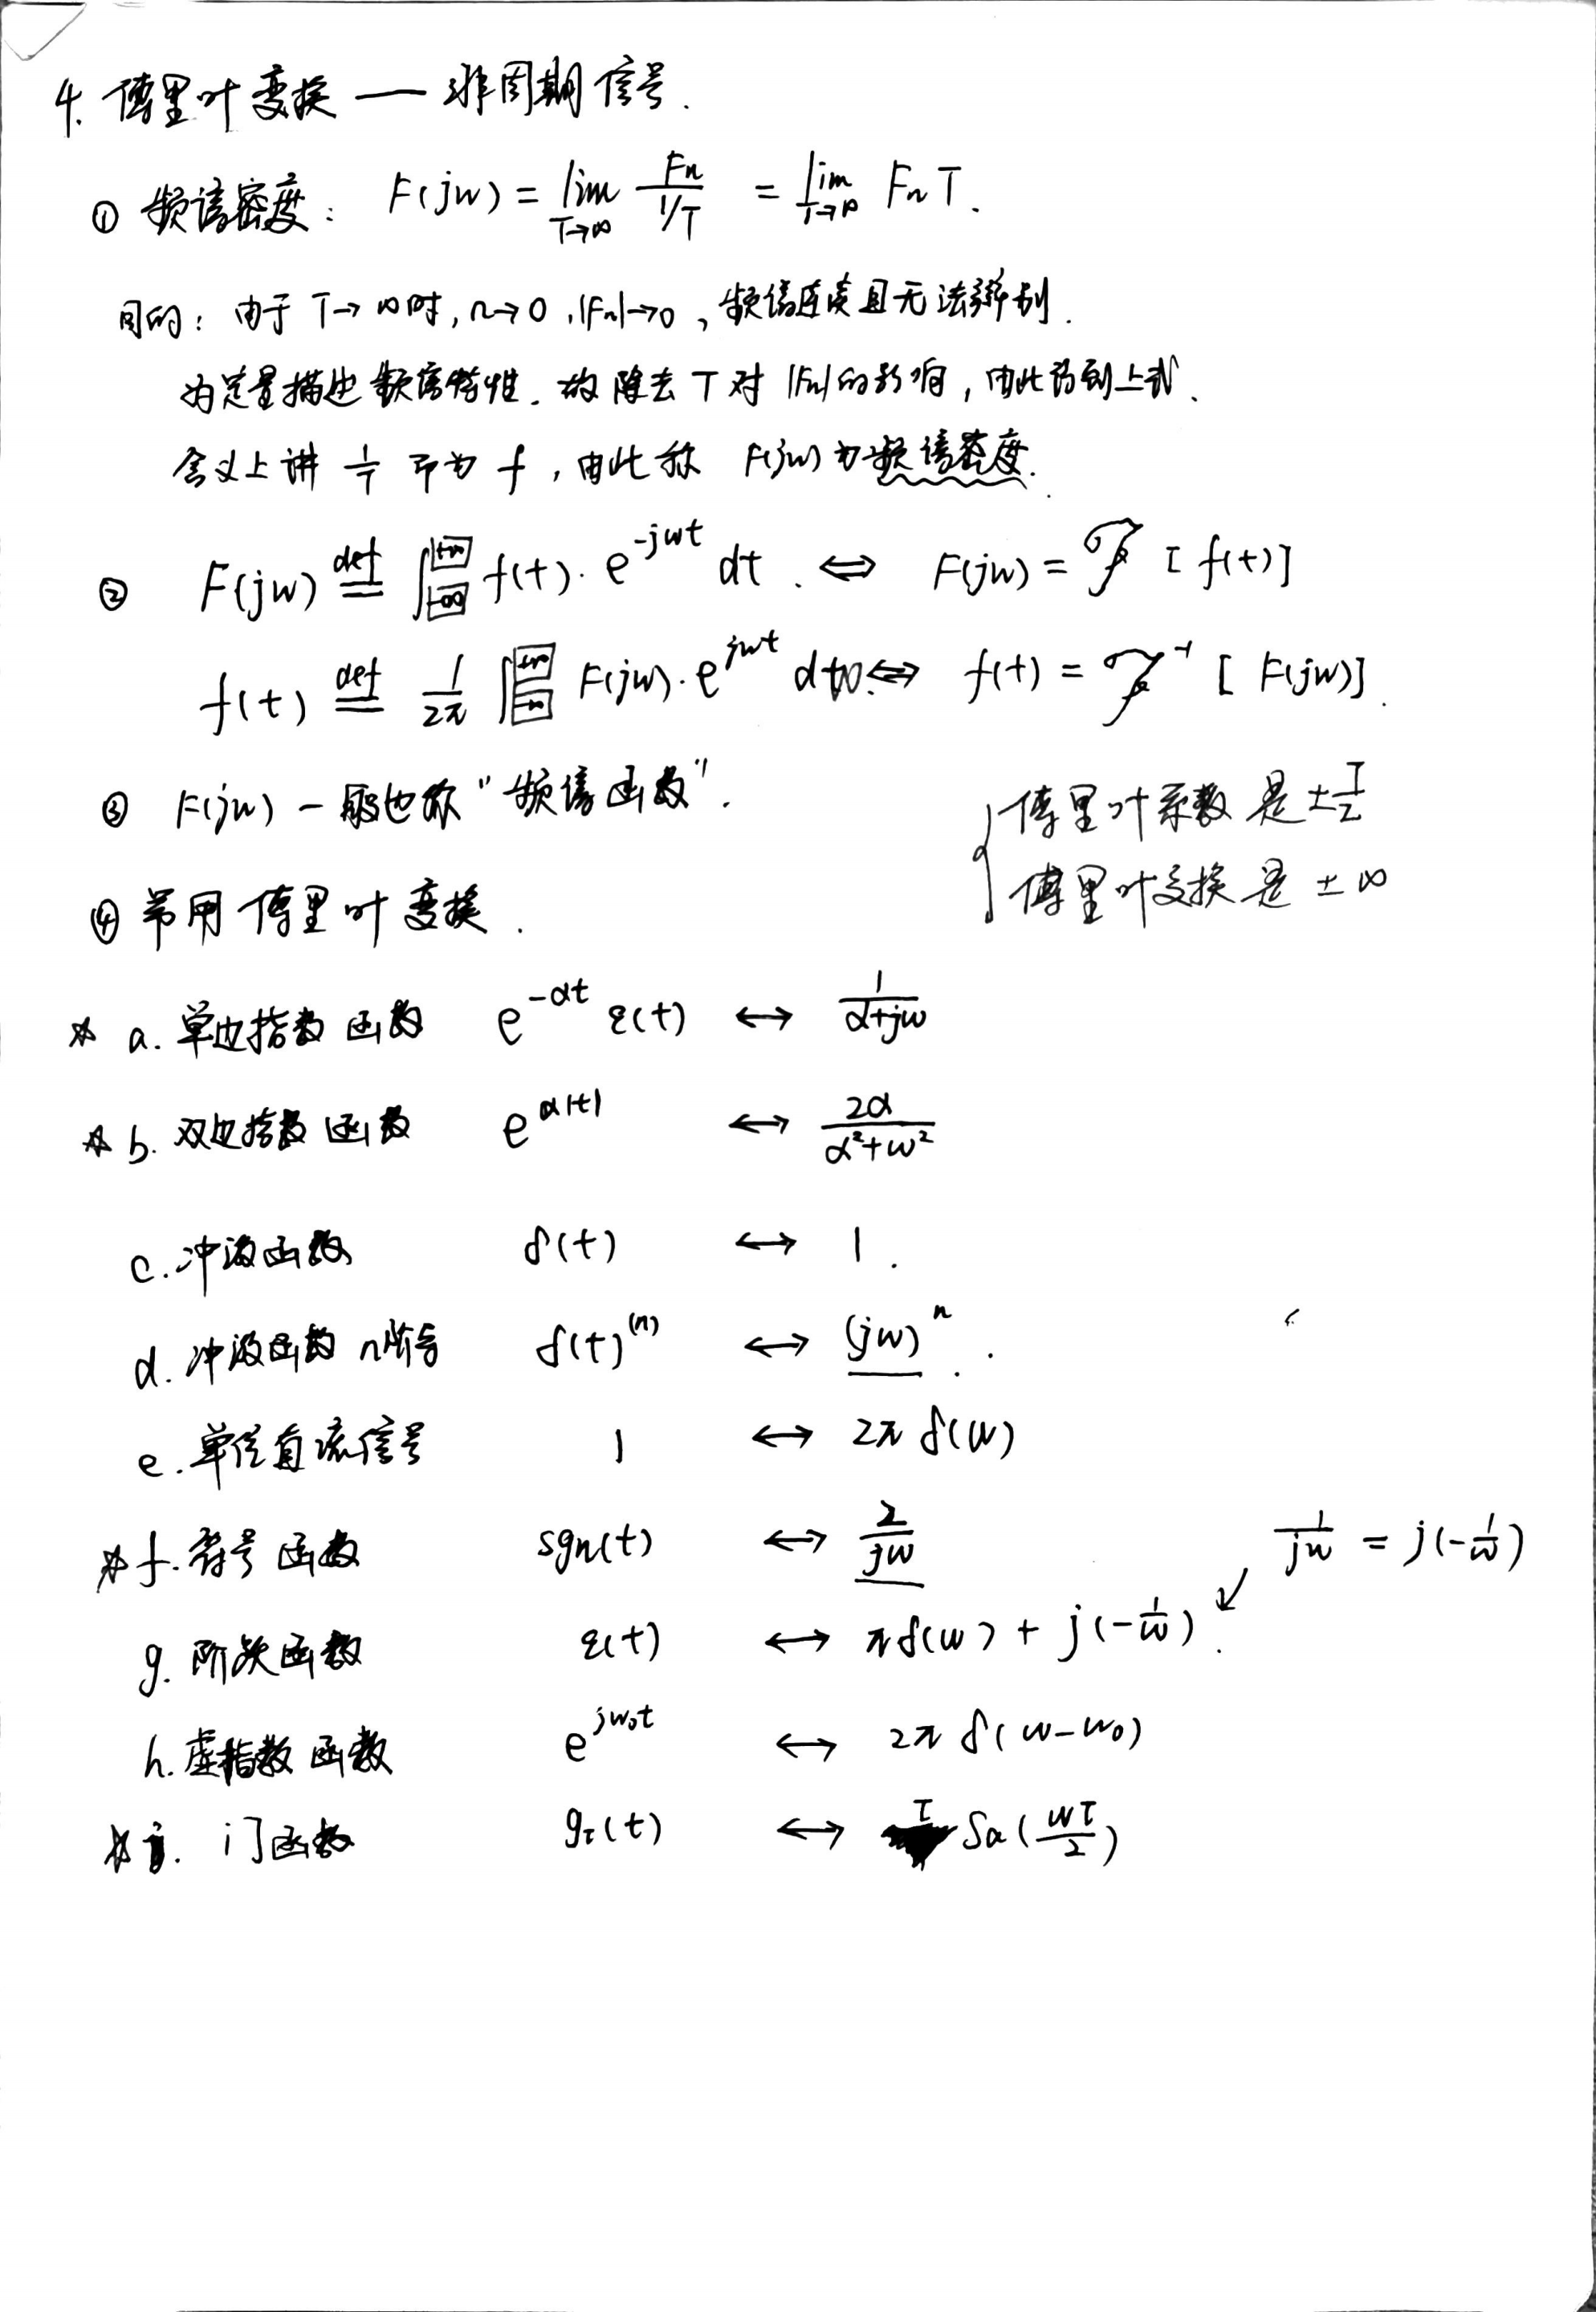 4. 傅里叶变换 — 非周期信号.
① 频谱密度: F(jw) = lim T→∞ Fn/(1/T) = lim T→∞ Fn T.
目的: 由于 T→∞时, n→0, |Fn|→0, 频谱连续且无法辨别.
为定量描述频谱特性. 故除去 T 对 |Fn| 的影响, 由此得到上式.
含义上讲 1/T 即为 f, 由此称 F(jw) 为频谱密度.
② F(jw) def= ∫_{-∞}^{+∞} f(t)·e^{-jwt} dt. ⇔ F(jw) = ℱ [f(t)]
f(t) def= 1/2π ∫_{-∞}^{+∞} F(jw)·e^{jwt} dw. ⇔ f(t) = ℱ^{-1} [F(jw)].
③ F(jw) 一般也称 "频谱函数".
{ 傅里叶系数是 ±T/2
傅里叶变换是 ±∞
④ 常用傅里叶变换.
☆ a. 单边指数函数 e^{-αt} ε(t) ↔ 1/(α+jw)
☆ b. 双边指数函数 e^{α|t|} ↔ 2α/(α²+w²)
c. 冲激函数 δ(t) ↔ 1.
d. 冲激函数 n阶导 δ(t)^{(n)} ↔ (jw)^n.
e. 单位直流信号 1 ↔ 2π δ(w)
☆ f. 符号函数 sgn(t) ↔ 2/jw
1/jw = j(-1/w)
g. 阶跃函数 ε(t) ↔ πδ(w) + j(-1/w).
h. 虚指数函数 e^{jw₀t} ↔ 2π δ(w-w₀)
☆ i. 门函数 g_τ(t) ↔ τ Sa(wτ/2)